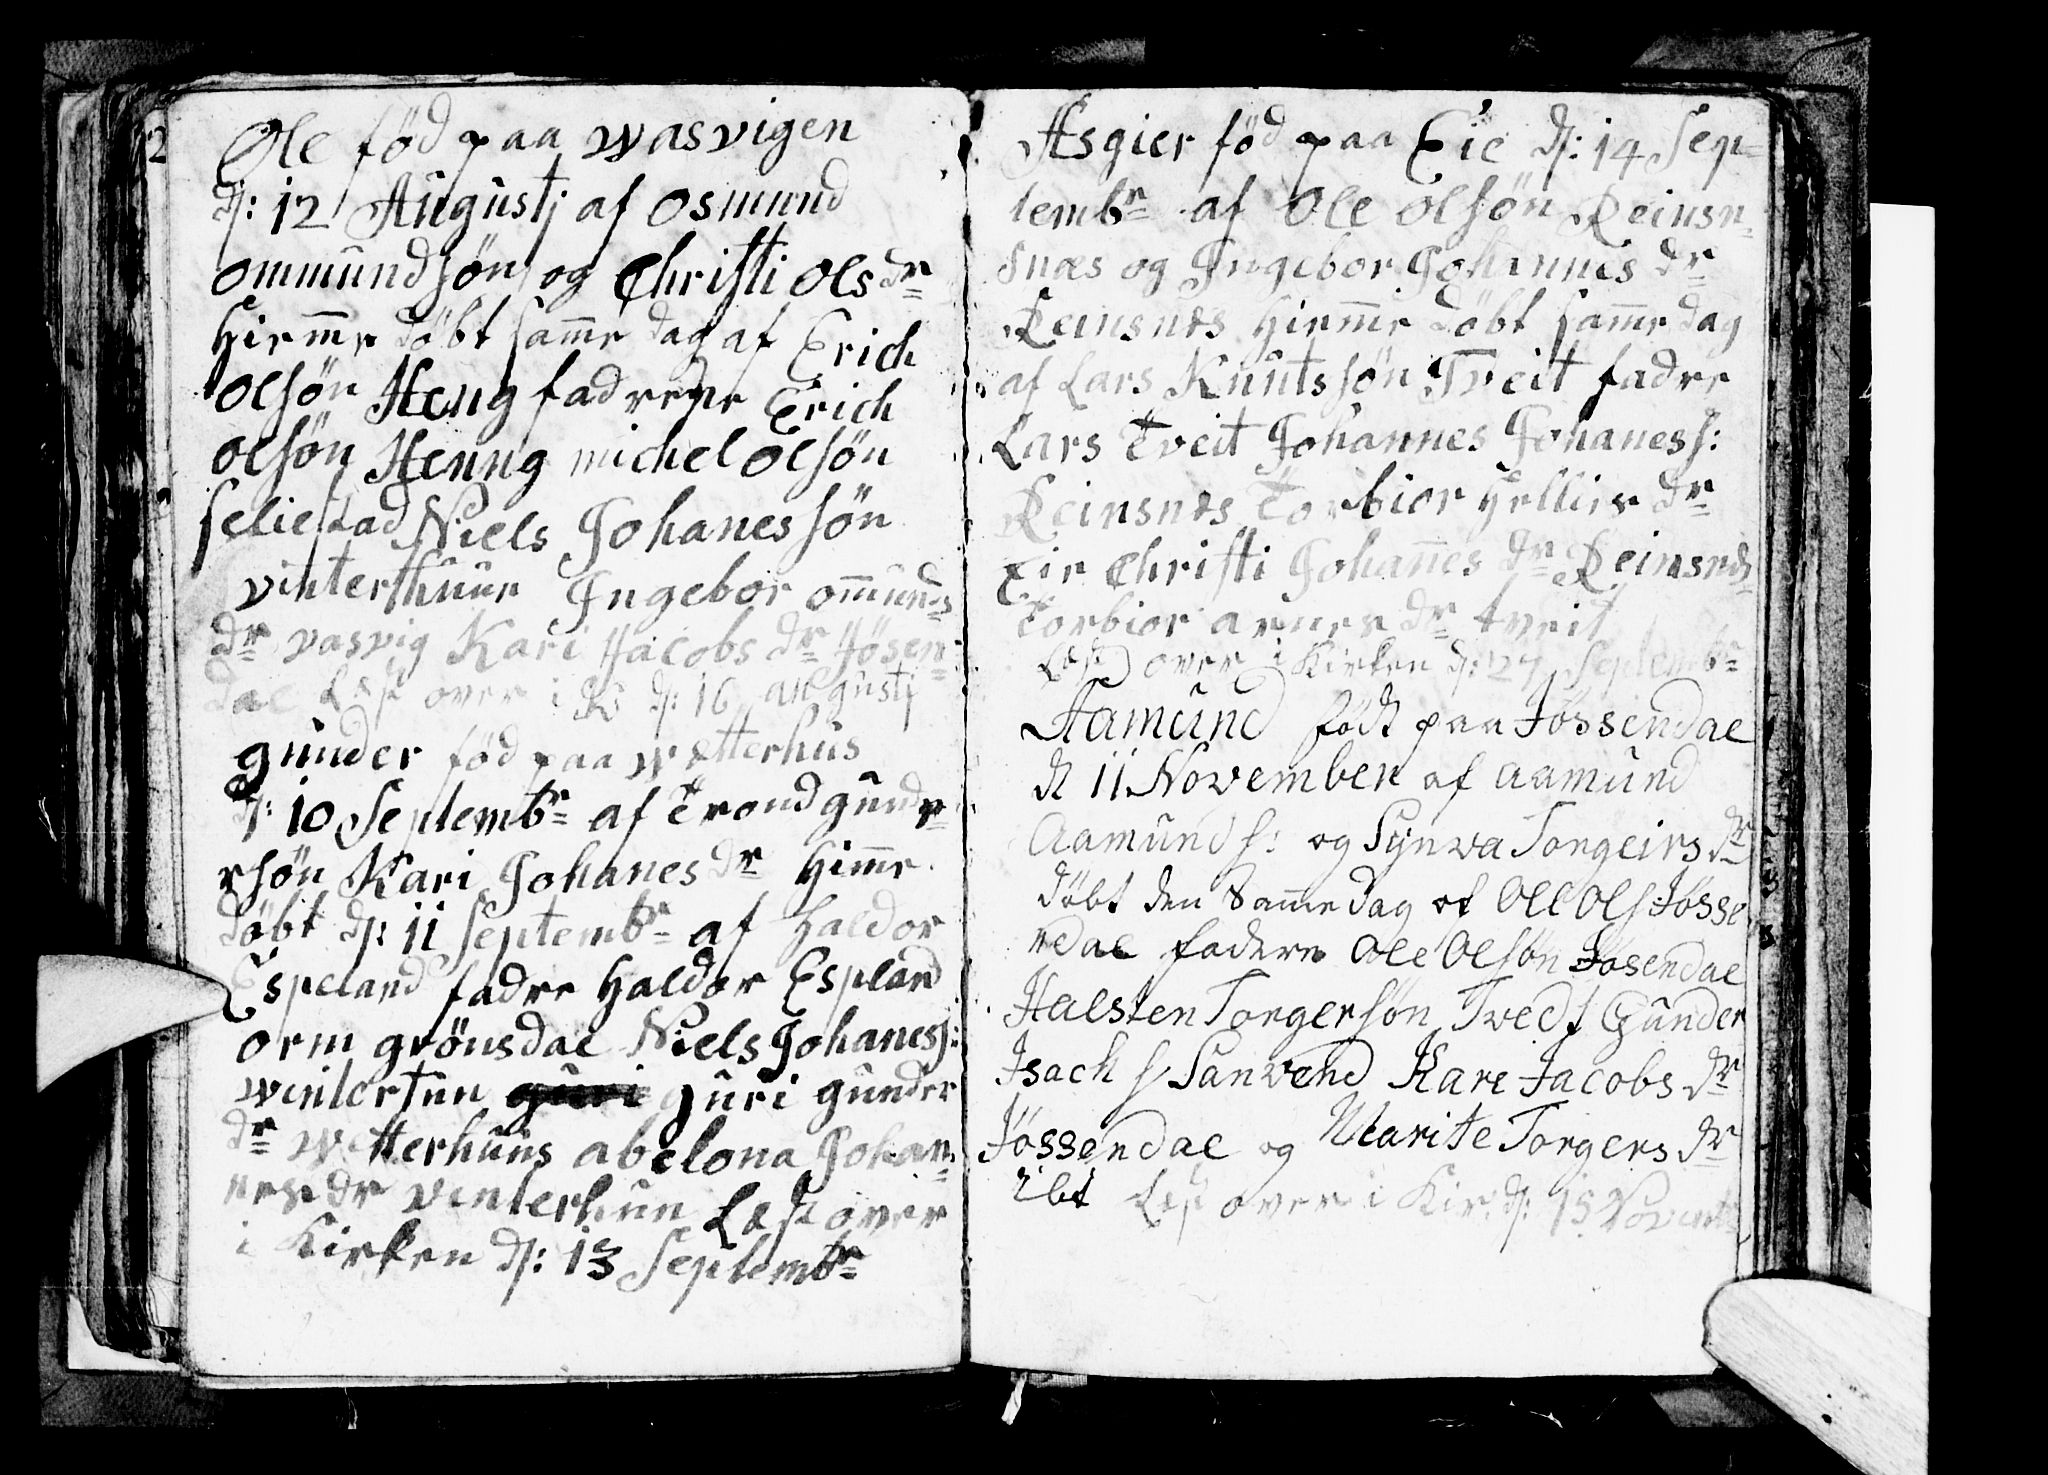 2
Ole fød paa wasvigen
d: 12 Augustj af osmund
ommundsøn og Christi ols dr
Hiemme døbt samme dag af Erich
olsøn Heng fadrene Erich
olsøn Henng michel olsøn
seliestad Niels Johanes søn
vinterthuun Ingebor ommunds
dr vasvig Kari Jacobs dr Jøsen-
dal Læst over i K d: 16 augustj
gunder fød paa wetterhus
d: 10 Septembr af trond gunde-
rsøn Kari Johanes dr himme
døbt d: 11 Septembr af haldor
Espeland fadre haldor Espland
orm grønsdal Niels Johaness:
wintertun guri guri gunder
dr wetterhuus abelona Johan-
nes dr vinterhun Læst over
i Kirken d: 13 Septembr
Asgier fød paa Eie d: 14 Sep-
tembr af ole olsøn Reinsn-
snæs og Ingebor Johannis dr
Reinsnæs hiemme døbt samme dag
af Lars Knutssøn Tveit fadre
Lars tveit Johannes Johaness:
Reinsnæs torbior hellies dr
Eie Christi Johannes dr Reinsnæs
torbior arnes dr tveit
Læst over i Kirken d: 27 Septembr
Aamund født paa Jøssendal
d 11 November af Aamund
Aamunds: og Synva Torgeirs dr
døbt den Samme dag af Ole Ols: Jøsse
ndal fadere Ole Olsøn Jøsendal
Halsten Torgersøn Tvedt Gunder
Isach s Sanvend Kare Jacobs dr
Jøssendal og Marite Torgers dr
ibt Læst over i Kir: d: 15 Novemb